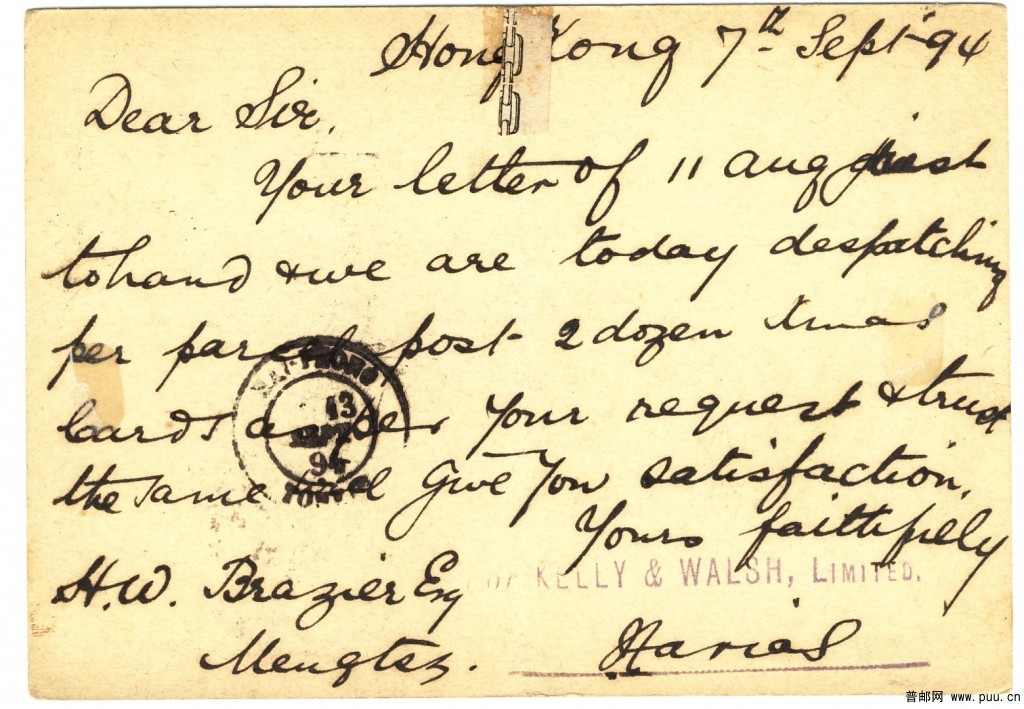 Hong Kong 7th Sept 94
Dear Sir,
Your letter of 11 aug
to hand & we are today despatching
per parcel post 2 dozen Xmas
Cards as per your request & trust
the same will give you satisfaction.
Yours faithfully
KELLY & WALSH, LIMITED.
H.W. Brazier Esq
Mengtsz.
HAI-PHONG
13
SEPT
94
TONKIN
普邮网 www.puu.cn